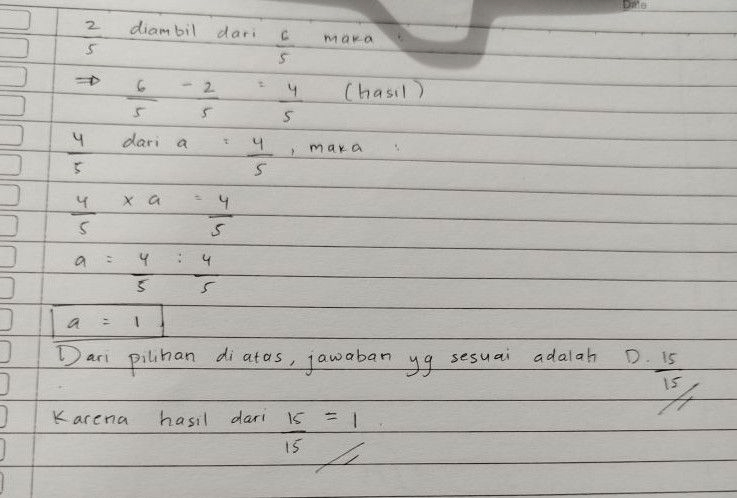 Date
2/5 diambil dari 6/5 maka :
⇒ 6/5 - 2/5 = 4/5 (hasil)
4/5 dari a = 4/5, maka :
4/5 x a = 4/5
a = 4/5 : 4/5
a = 1
Dari pilihan di atas, jawaban yg sesuai adalah D. 15/15 //
Karena hasil dari 15/15 = 1. //